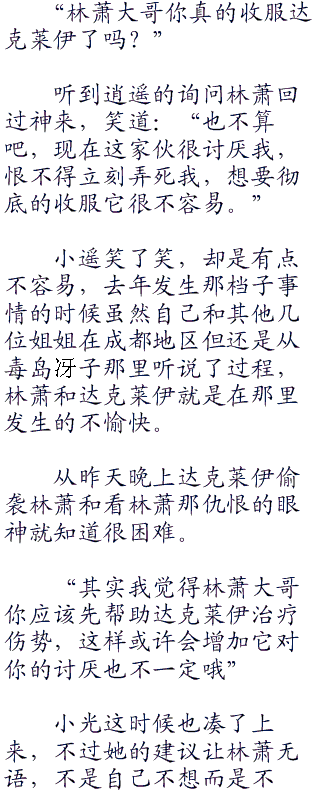 “林萧大哥你真的收服达
克莱伊了吗？”
听到逍遥的询问林萧回
过神来，笑道：“也不算
吧，现在这家伙很讨厌我，
恨不得立刻弄死我，想要彻
底的收服它很不容易。”
小遥笑了笑，却是有点
不容易，去年发生那档子事
情的时候虽然自己和其他几
位姐姐在成都地区但还是从
毒岛冴子那里听说了过程，
林萧和达克莱伊就是在那里
发生的不愉快。
从昨天晚上达克莱伊偷
袭林萧和看林萧那仇恨的眼
神就知道很困难。
“其实我觉得林萧大哥
你应该先帮助达克莱伊治疗
伤势，这样或许会增加它对
你的讨厌也不一定哦”
小光这时候也凑了上
来，不过她的建议让林萧无
语，不是自己不想而是不